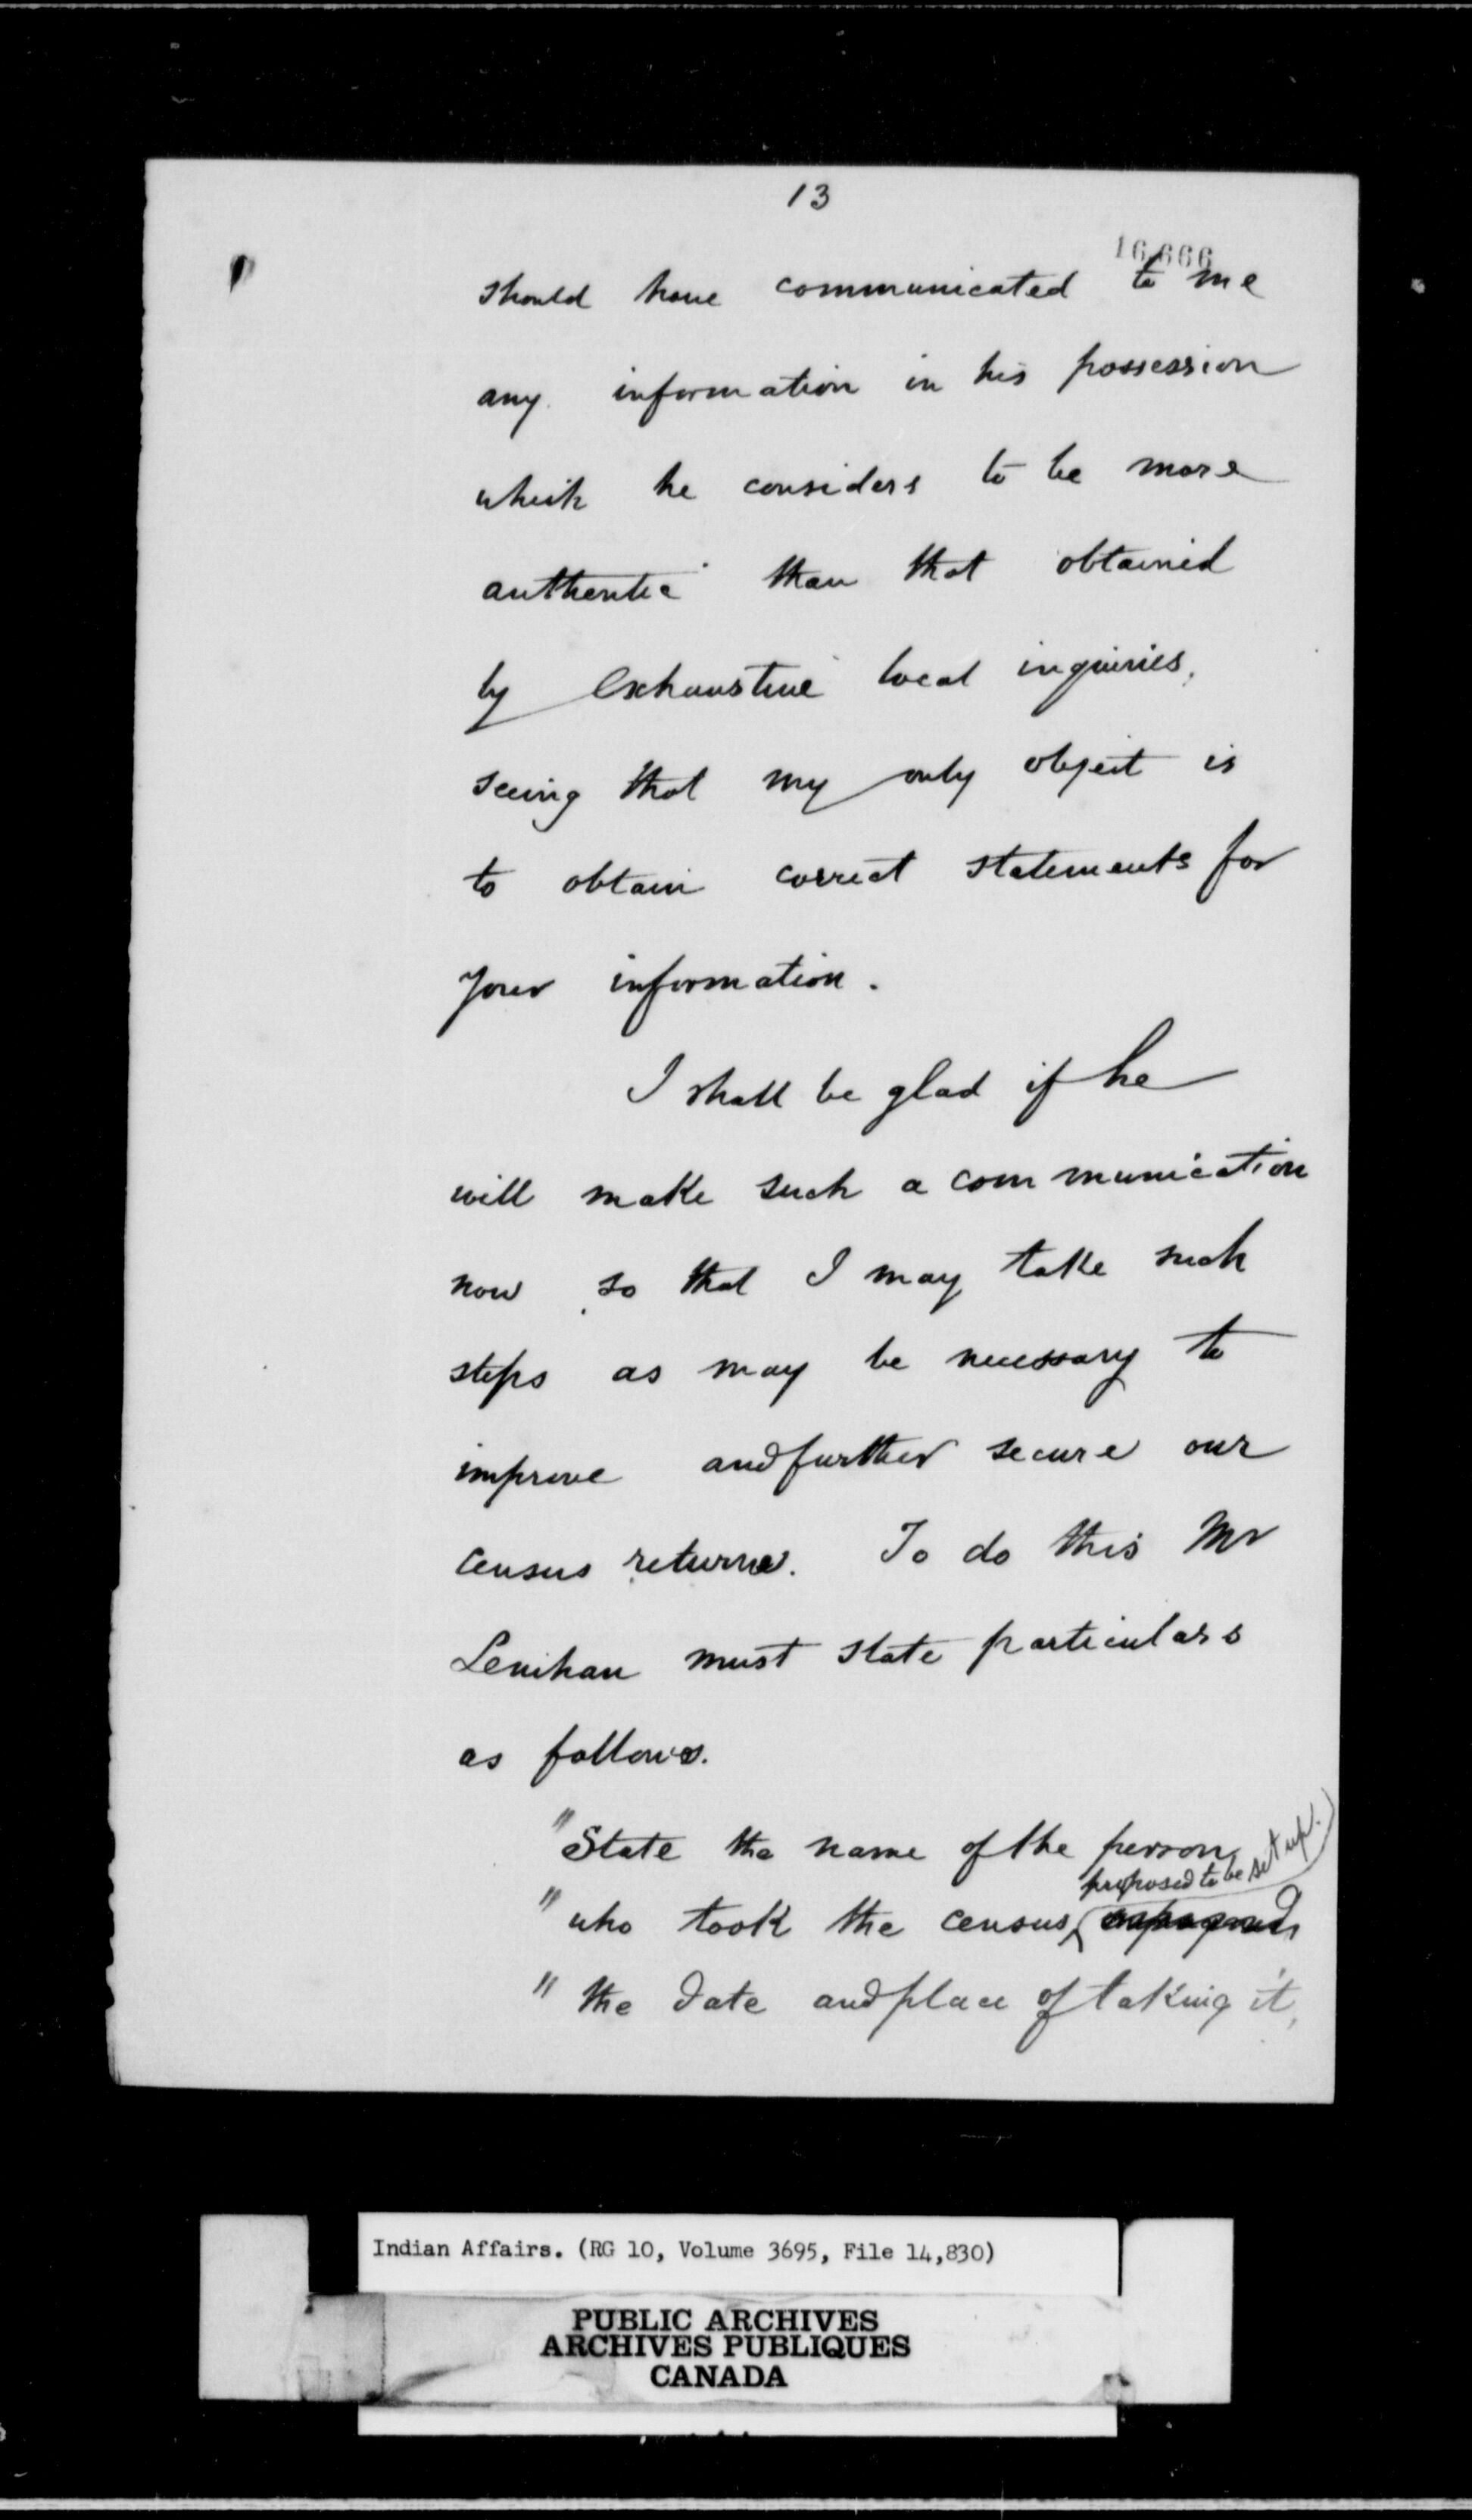 13
16,666
should have communicated to me
any information in his possession
which he considers to be more
authentic than that obtained
by exhaustive local inquiries,
seeing that my only object is
to obtain correct statements for
your information.
I shall be glad if he
will make such a communication
now so that I may take such
steps as may be necessary to
improve and further secure our
census returns. To do this Mr
Lenihan must state particulars
as follows.
"State the name of the person
proposed to be set up.)
"who took the census (
"the date and place of taking it,
Indian Affairs. (RG 10, Volume 3695, File 14,830)
PUBLIC ARCHIVES
ARCHIVES PUBLIQUES
CANADA